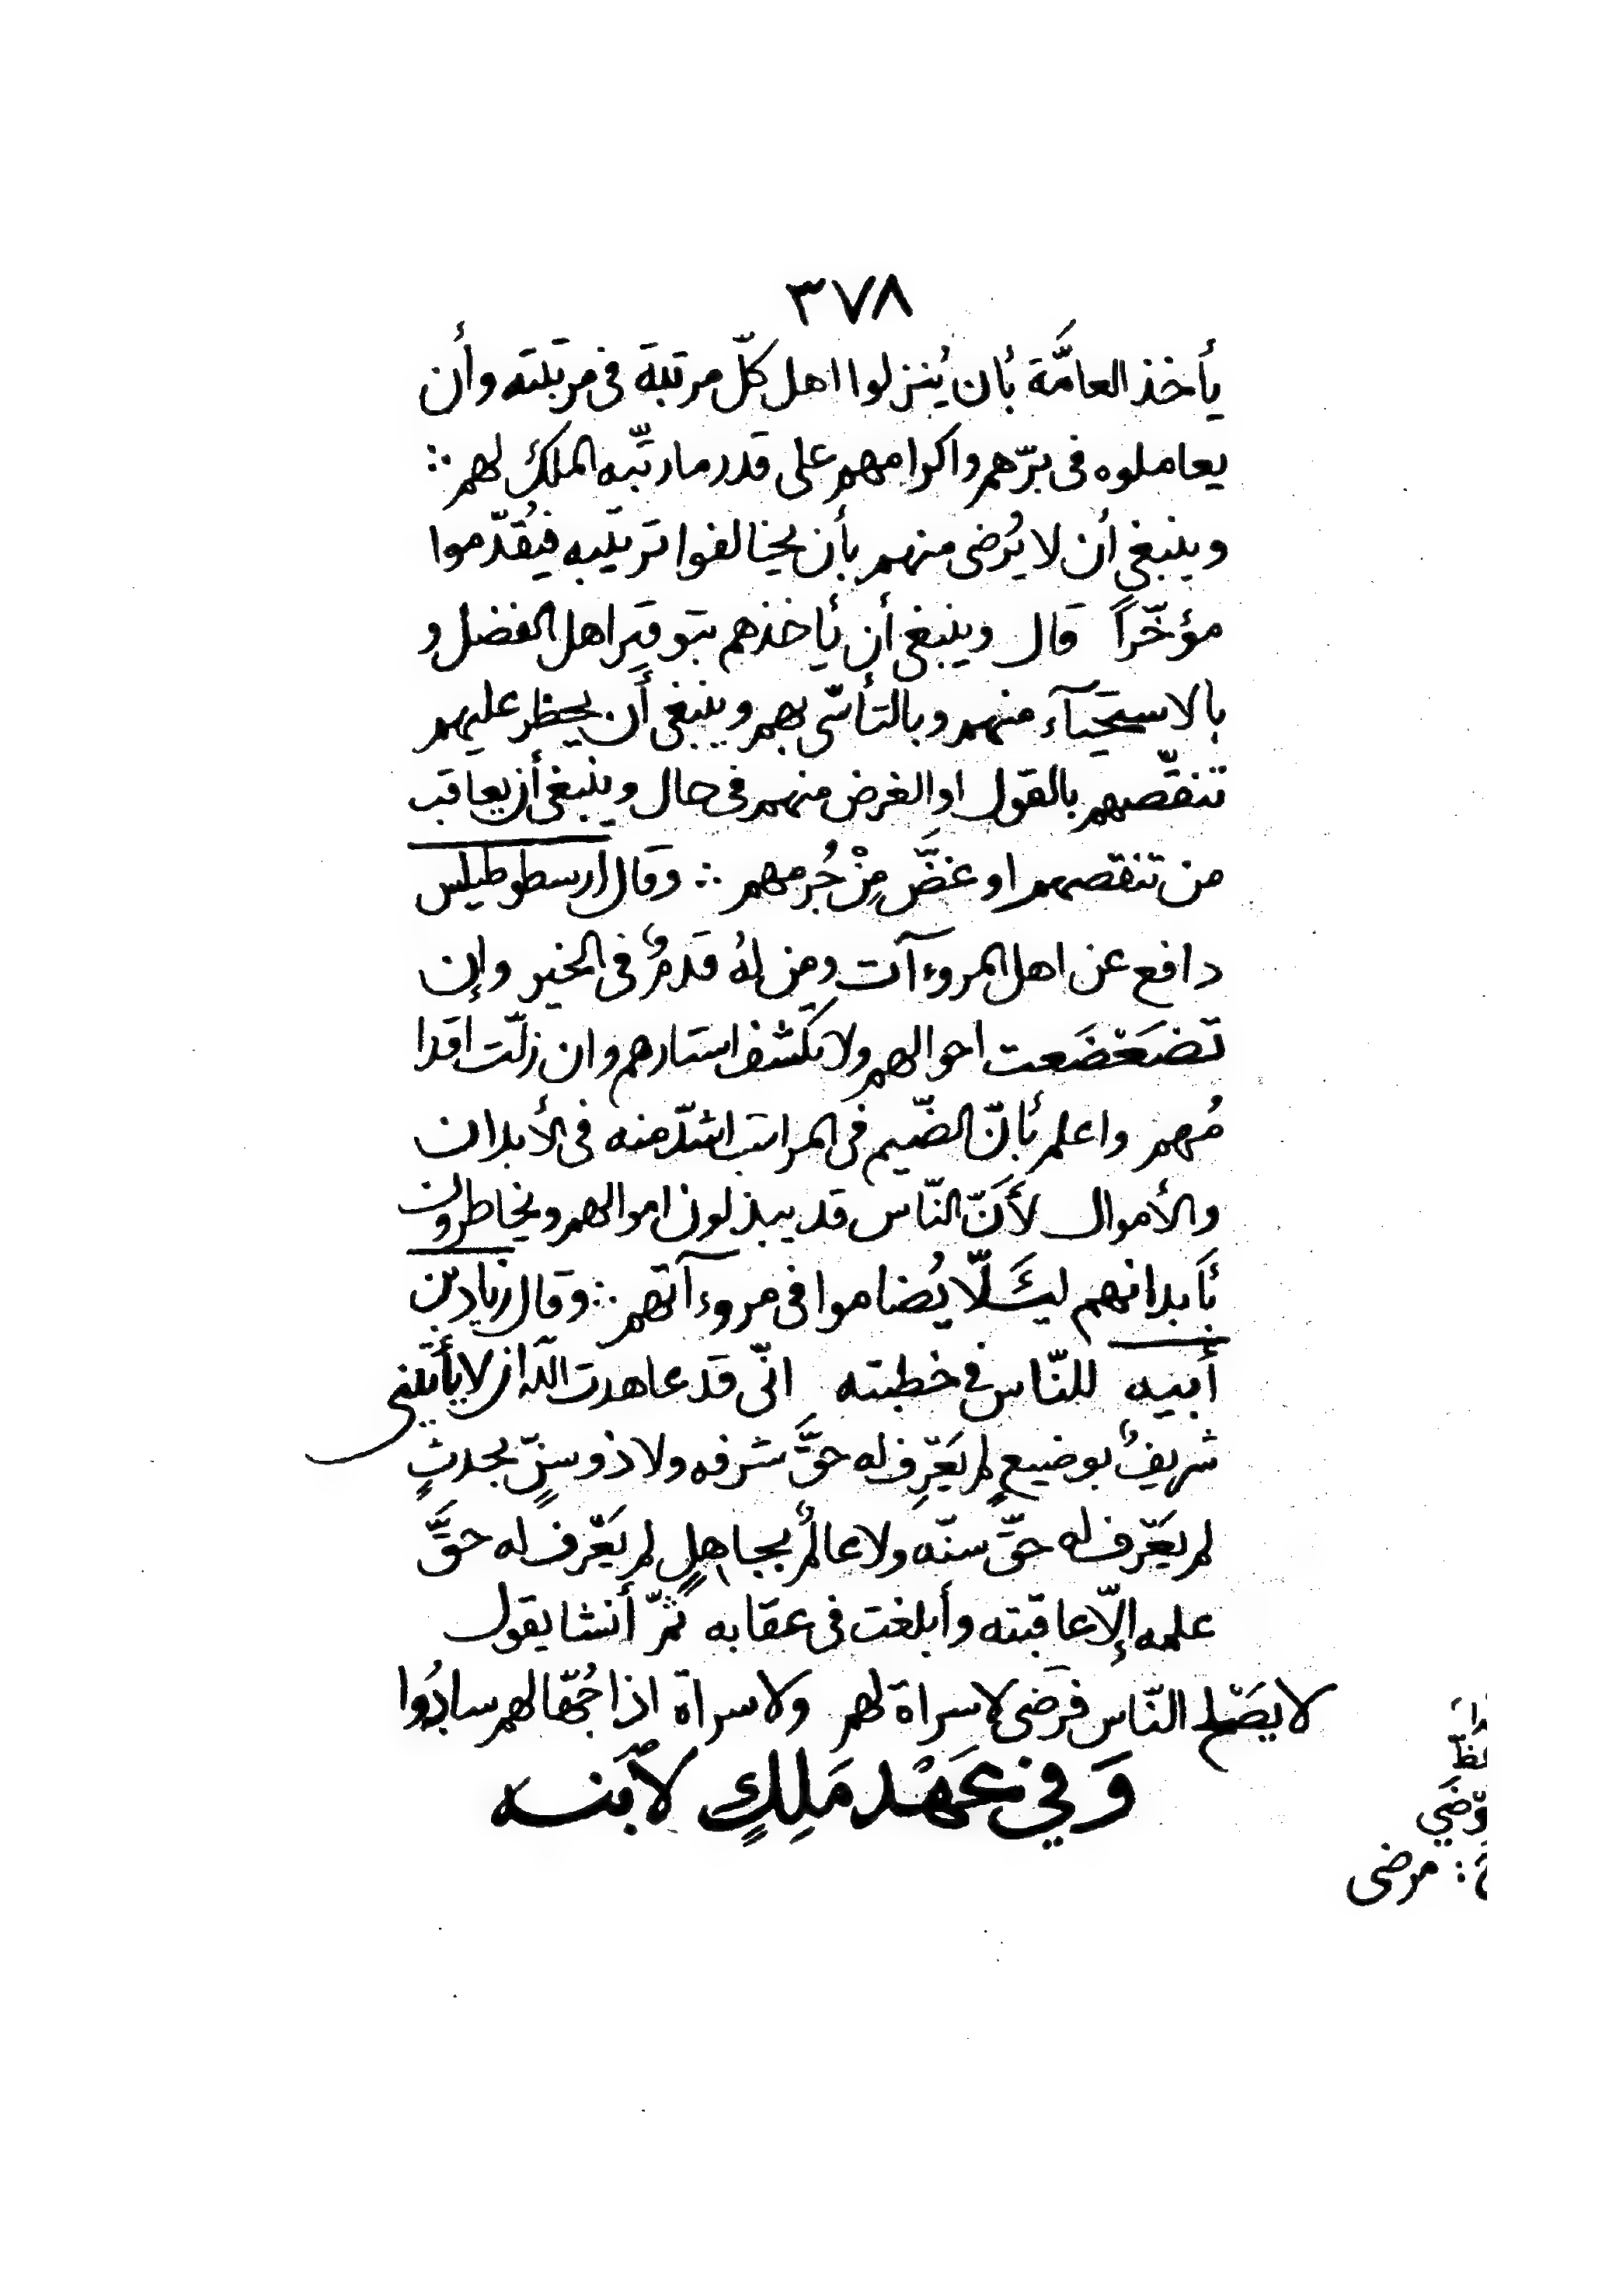 ٣٧٨
يأخذ العامَّة بأن يُنزلوا اهل كلّ مرتبة فى مرتبته وأن
يعاملوه فى برّهم واكرامهم على قدر ما رتّبه الملك لهم ∴
وينبغى أن لا يُرضى منهم بأن يخالفوا ترتيبه فيُقدّموا
مؤخّراً قال وينبغى أن يأخذهم بتوقير اهل الفضل و
بالاستحيآء منهم وبالتأسّى بهم وينبغى أن يحظر عليهم
تنقّصهم بالقول او الغرض منهم فى حال وينبغى أن يعاقب
من تنقصهم او غضَّ مِنْ جُرمهم ∴ وقال ارسطوطيلس
دافع عن اهل المروءآت ومن لهُ قدمٌ فى الخير وإن
تضَعْضَعت احوالهم ولا تكشف استارهم وان زلّت اقدا
مُهم واعلم بأنّ الضّيم فى المراتب اشدّ منه فى الأبدان
والأموال لأنّ النّاس قد يبذلون اموالهم ويخاطرون
بأبدانهم ليئَلّا يُضاموا فى مروءآتهم ∴ وقال زياد بن
أبيه للنّاس فى خطبته انّى قد عاهدت اللّه ان لا يأتينى
شريفٌ بوضيعٍ لم يَعّرِف له حقَّ شرفه ولا ذو سنٍّ بحدثٍ
لم يَعّرف له حقّ سنّه ولا عالمٌ بجاهلٍ لم يَعّرف له حقَّ
علمه إلّا عاقبته وأبلغت فى عقابه ثمّ أنشا يقول
لا يصَْلح النّاس فرضى لا سراة لهم ولا سراة اذا جُهّالهم سادُوا
وَفي عَهْد مَلِكٍ لآبنه
مرضى